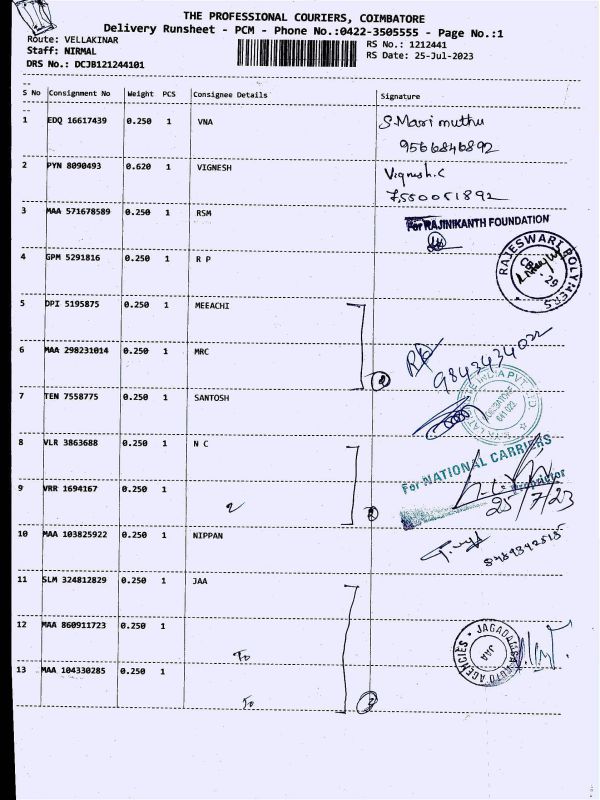 THE PROFESSIONAL COURIERS, COIMBATORE
Delivery Runsheet - PCM - Phone No.:0422-3505555 - Page No.:1
Route: VELLAKINAR RS No.: 1212441
Staff: NIRMAL RS Date: 25-Jul-2023
DRS No.: DCJB121244101
S No Consignment No Weight PCS Consignee Details Signature
1 EDQ 16617439 0.250 1 VNA S.Mari muthu
9566846892
2 PYN 8090493 0.620 1 VIGNESH Vignesh.C
7550051892
3 MAA 571678589 0.250 1 RSM For RAJINIKANTH FOUNDATION
4 GPM 5291816 0.250 1 R P RAJESWARI POLYMERS
29
5 DPI 5195875 0.250 1 MEEACHI
6 MAA 298231014 0.250 1 MRC 9843434022
7 TEN 7558775 0.250 1 SANTOSH
641 023
8 VLR 3863688 0.250 1 N C For NATIONAL CARRIERS
Proprietor
9 VRR 1694167 0.250 1 2 25/7/23
10 MAA 103825922 0.250 1 NIPPAN
11 SLM 324812829 0.250 1 JAA
12 MAA 860911723 0.250 1 To JAA
13 MAA 104330285 0.250 1 To